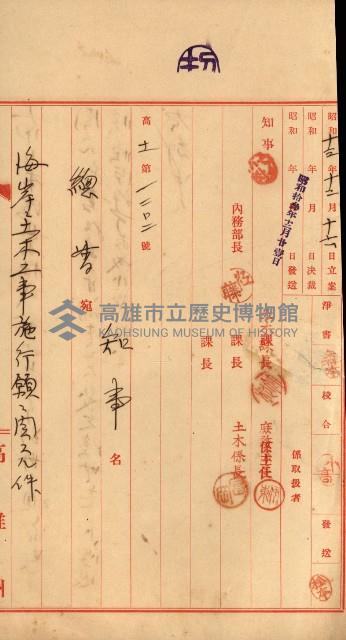 昭和十三年十二月十六日立案
昭和 年 月 日決裁
昭和 年 月 日發送
昭和拾參年十二月廿壹日
淨書
校合
發送
係取扱者
知事
內務部長
課長
課長
課長
庶務係主任
土木係長
高土第一二〇二號
知事名
總督宛
海岸土木工事施行願ニ関スル件
高雄州
高雄市立歷史博物館
KAOHSIUNG MUSEUM OF HISTORY